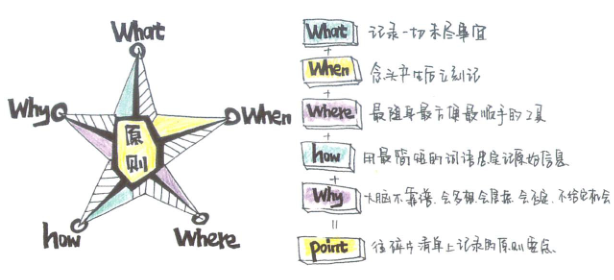 What
Why
When
原则
how
Where
What 记录一切未尽事宜
+
When 念头产生后立刻记
+
Where 最随身最方便最顺手的工具
+
how 用最简短的词语忠实记原始信息
+
Why 大脑不靠谱,会多想,会悬乱,会忘,不给它机会
=
point 往碎片清单上记录的原则要点